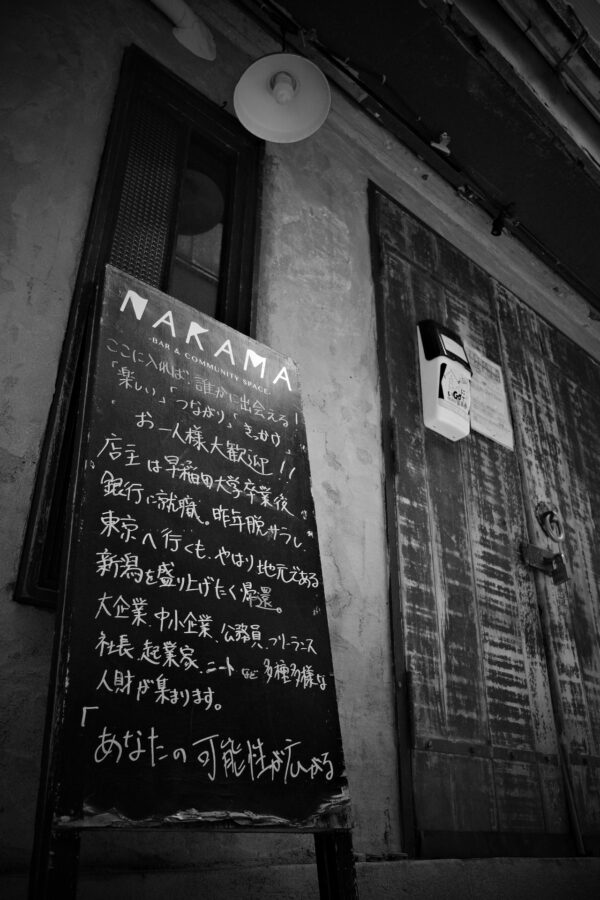 NAKAMA
-BAR & COMMUNITY SPACE-
ここに入れば誰かに出会える!
「楽しい」「つながり」「きっかけ」
お一人様大歓迎!!
店主は早稲田大学卒業後、
銀行に就職。昨年脱サラし、
東京へ行くも、やはり地元である
新潟を盛り上げたく帰還。
大企業、中小企業、公務員、フリーランス
社長、起業家、ニートなど多種多様な
人財が集まります。
「あなたの可能性が広がる